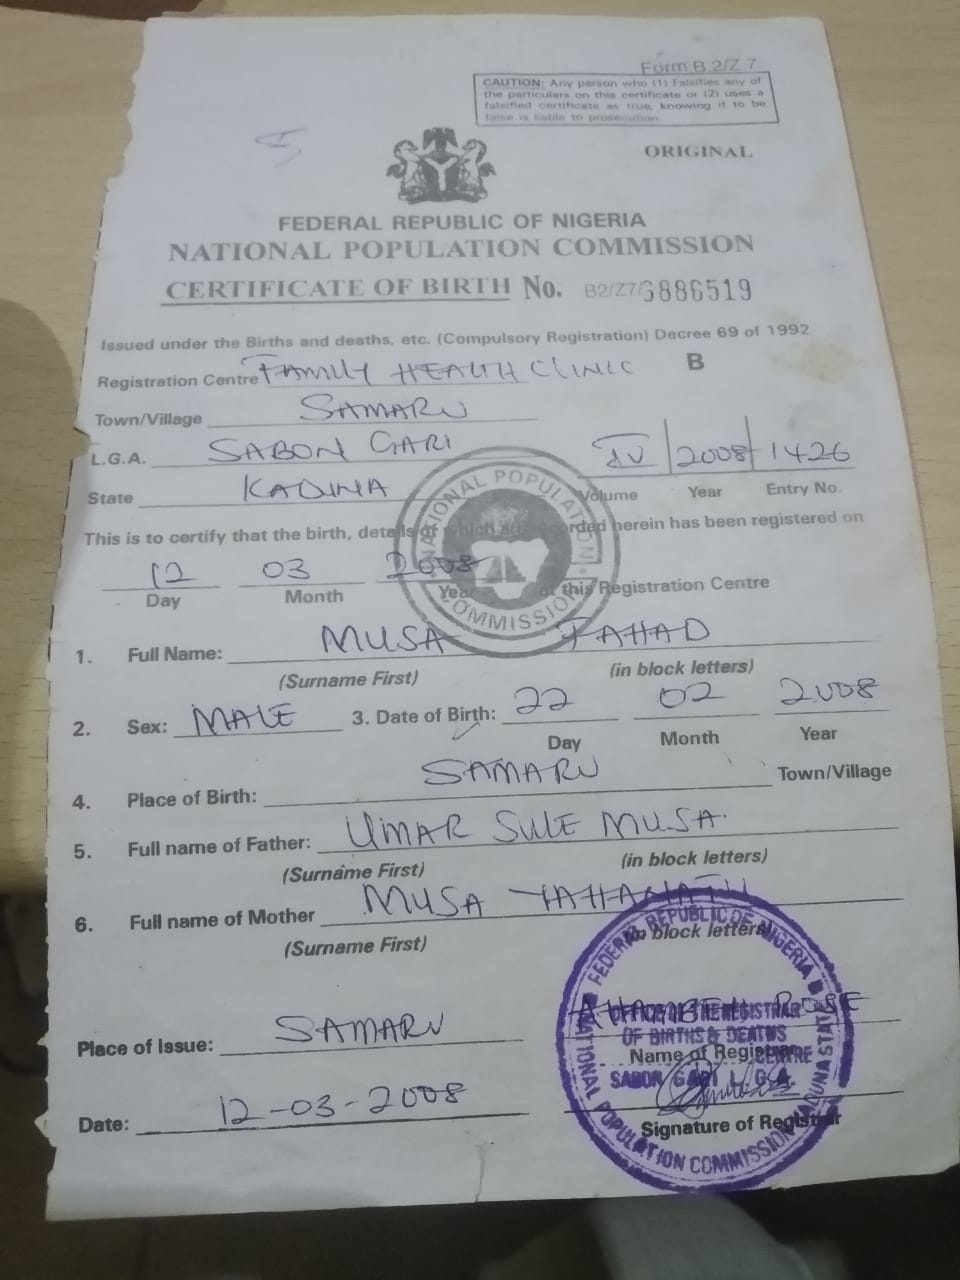 Form B 2/Z 7
CAUTION: Any person who (1) Falsifies any of
the particulars on this certificate or (2) uses a
falsified certificate as true, knowing it to be
false is liable to prosecution.
ORIGINAL
FEDERAL REPUBLIC OF NIGERIA
NATIONAL POPULATION COMMISSION
CERTIFICATE OF BIRTH No. B2/Z7/3886519
Issued under the Births and deaths, etc. (Compulsory Registration) Decree 69 of 1992
Registration Centre FAMILY HEALTH CLINIC B
Town/Village SAMARU
L.G.A. SABON GARI IV 2008 1426
State KADUNA Volume Year Entry No.
This is to certify that the birth, details of which are recorded herein has been registered on
12 03 2008
Day Month Year at this Registration Centre
NATIONAL POPULATION COMMISSION
1. Full Name: MUSA FAHAD
(Surname First) (in block letters)
2. Sex: MALE 3. Date of Birth: 22 02 2008
Day Month Year
4. Place of Birth: SAMARU Town/Village
5. Full name of Father: UMAR SULE MUSA.
(Surname First) (in block letters)
6. Full name of Mother MUSA
(Surname First) (in block letters)
Place of Issue: SAMARU ROSE
Name of Registrar
Date: 12-03-2008
Signature of Registrar
FEDERAL REPUBLIC OF NIGERIA
NATIONAL POPULATION COMMISSION KADUNA STATE
OFFICE OF THE REGISTRAR
OF BIRTHS & DEATHS
CENTRE
SABON GARI L.G.A.